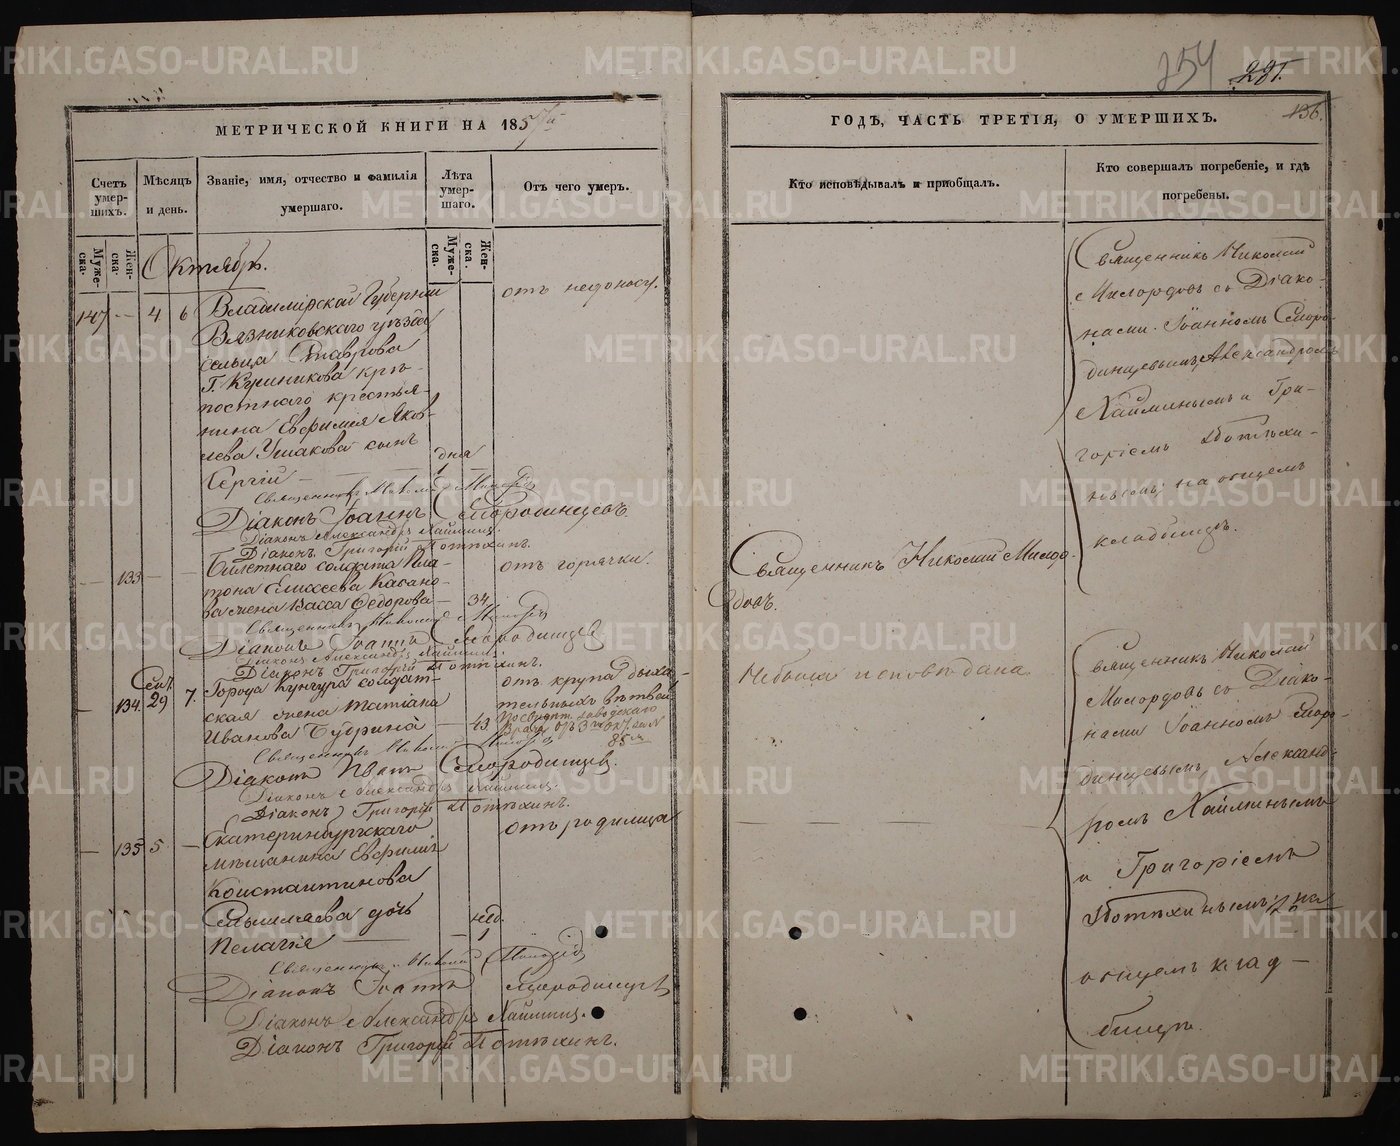 МЕТРИЧЕСКОЙ КНИГИ НА 1857й
Счетъ умер-шихъ.
Мѣсяцъ и день.
Званіе, имя, отчество и фамилія умершаго.
Лѣта умер-шаго.
Отъ чего умеръ.
Муже-ска.
Жен-ска.
Муже-ска.
Жен-ска.
Октябрь.
147 — 4 6
Владимірской Губерніи
Вязниковскаго уѣзда
сельца Ставрова
Г. Куриникова крѣ-
постнаго крестья-
нина Евфимія Яков-
лева Ушакова сынъ
Сергій —
дня
1
отъ недоносу.
Священникъ Николай Милордовъ
Діаконъ Іоаннъ Смородинцевъ.
Діаконъ Александръ Хаймин.
Діаконъ Григорій Потѣхинъ.
— 133 —
Билетнаго солдата Пла-
тона Елисеева Кагано-
ва жена Васса Ѳедорова —
34
отъ горячки.
Священникъ Николай Милордовъ
Діаконъ Іоаннъ Смородинцевъ
Діаконъ Александръ Хаймин.
Діаконъ Григорій Потѣхинъ.
— 134. Сент. 29 7.
Города Кунгура солдат-
ская жена Татіана
Иванова Бубрина
— 43.
отъ крупа дыха-
тельныхъ вѣтвей
По свидѣт. заводскаго
Врача отъ 3го окт. за №
85м
Священникъ Николай Милордовъ
Діаконъ Іоаннъ Смородинцев.
Діаконъ Александръ Хаймин.
Діаконъ Григорій Потѣхинъ.
— 135 5 —
Екатеринбургскаго
мѣщанина Евфимія
Константинова
дочь
Пелагія —
нед.
1
отъ родимца
Священникъ Николай Милордовъ
Діаконъ Іоаннъ Смородинцевъ
Діаконъ Александръ Хаймин.
Діаконъ Григорій Потѣхинъ.
254
281.
136.
ГОДѢ, ЧАСТЬ ТРЕТІЯ, О УМЕРШИХЪ.
Кто исповѣдывалъ и пріобщалъ.
Кто совершалъ погребеніе, и гдѣ погребены.
Священникъ Николай Милор-
довъ.
Небыла исповѣдана
Священникъ Николай
Милордовъ со Діако-
нами Іоанномъ Сморо-
динцевымъ, Александромъ
Хайминымъ и Гри-
горіемъ Потѣхи-
нымъ; на общемъ
кладбищѣ.
Священникъ Николай
Милордовъ со Діако-
нами Іоанномъ Сморо-
динцевымъ Александ-
ромъ Хайминымъ
и Григоріемъ
Потѣхинымъ; на
общемъ клад-
бищѣ.
METRIKI.GASO-URAL.RU